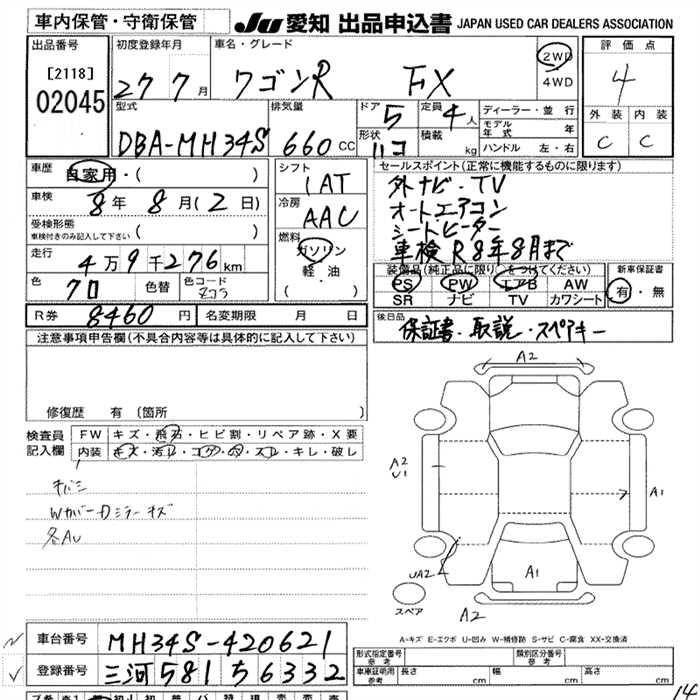 車内保管・守衛保管
JU 愛知 出品申込書 JAPAN USED CAR DEALERS ASSOCIATION
出品番号
[2118]
02045
初度登録年月
27 7月
車名・グレード
ワゴンR FX
2WD
4WD
評価点
4
外装 内装
C C
型式
DBA-MH34S
排気量
660 CC
ドア 5
形状 ハコ
定員 4人
積載 kg
ディーラー・並行
モデル年式 年
ハンドル 左・右
車歴 自家用・( )
車検 8年 8月(2日)
受検形態
車検付きのみ記入して下さい ( )
走行 4万9千276km
色 クロ 色替 色コード ZJ3
シフト
1AT
冷房
AAC
燃料
ガソリン
軽・油
( )
セールスポイント(正常に機能するものに限ります)
外ナビ・TV
オートエアコン
シートヒーター
車検R8年8月まで
装備品(純正品に限り○をつけてください)
PS PW エアB AW
SR ナビ TV カワシート
新車保証書
有・無
R券 8460円 名変期限 月 日
後日品
保証書・取説・スペアキー
注意事項申告欄(不具合内容等は具体的に記入して下さい)
修復歴 有 〔箇所 〕
検査員記入欄
FW キズ・飛石・ヒビ割・リペア跡・X要
内装 キズ・汚れ・コゲ・穴・スレ・キレ・破レ
キバミ
Wカバー・Dミラーキズ
各AU
A2
A2
U1
A1
UA2
A1
スペア
A2
A-キズ E-エクボ U-凹み W-補修跡 S-サビ C-腐食 XX-交換済
車台番号 MH34S-420621
登録番号 三河 581 ち 6332
形式指定番号 参考
類別区分番号 参考
車庫証明用 参考 長さ cm 幅 cm 高さ cm
14